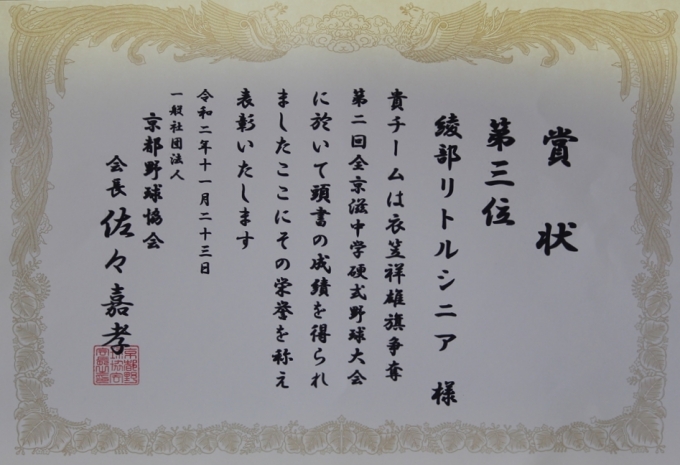 賞状
第三位
綾部リトルシニア 様
貴チームは衣笠祥雄旗争奪
第二回全京滋中学硬式野球大会
に於いて頭書の成績を得られ
ましたここにその栄誉を称え
表彰いたします
令和二年十一月二十三日
一般社団法人
京都野球協会
会長 佐々嘉孝